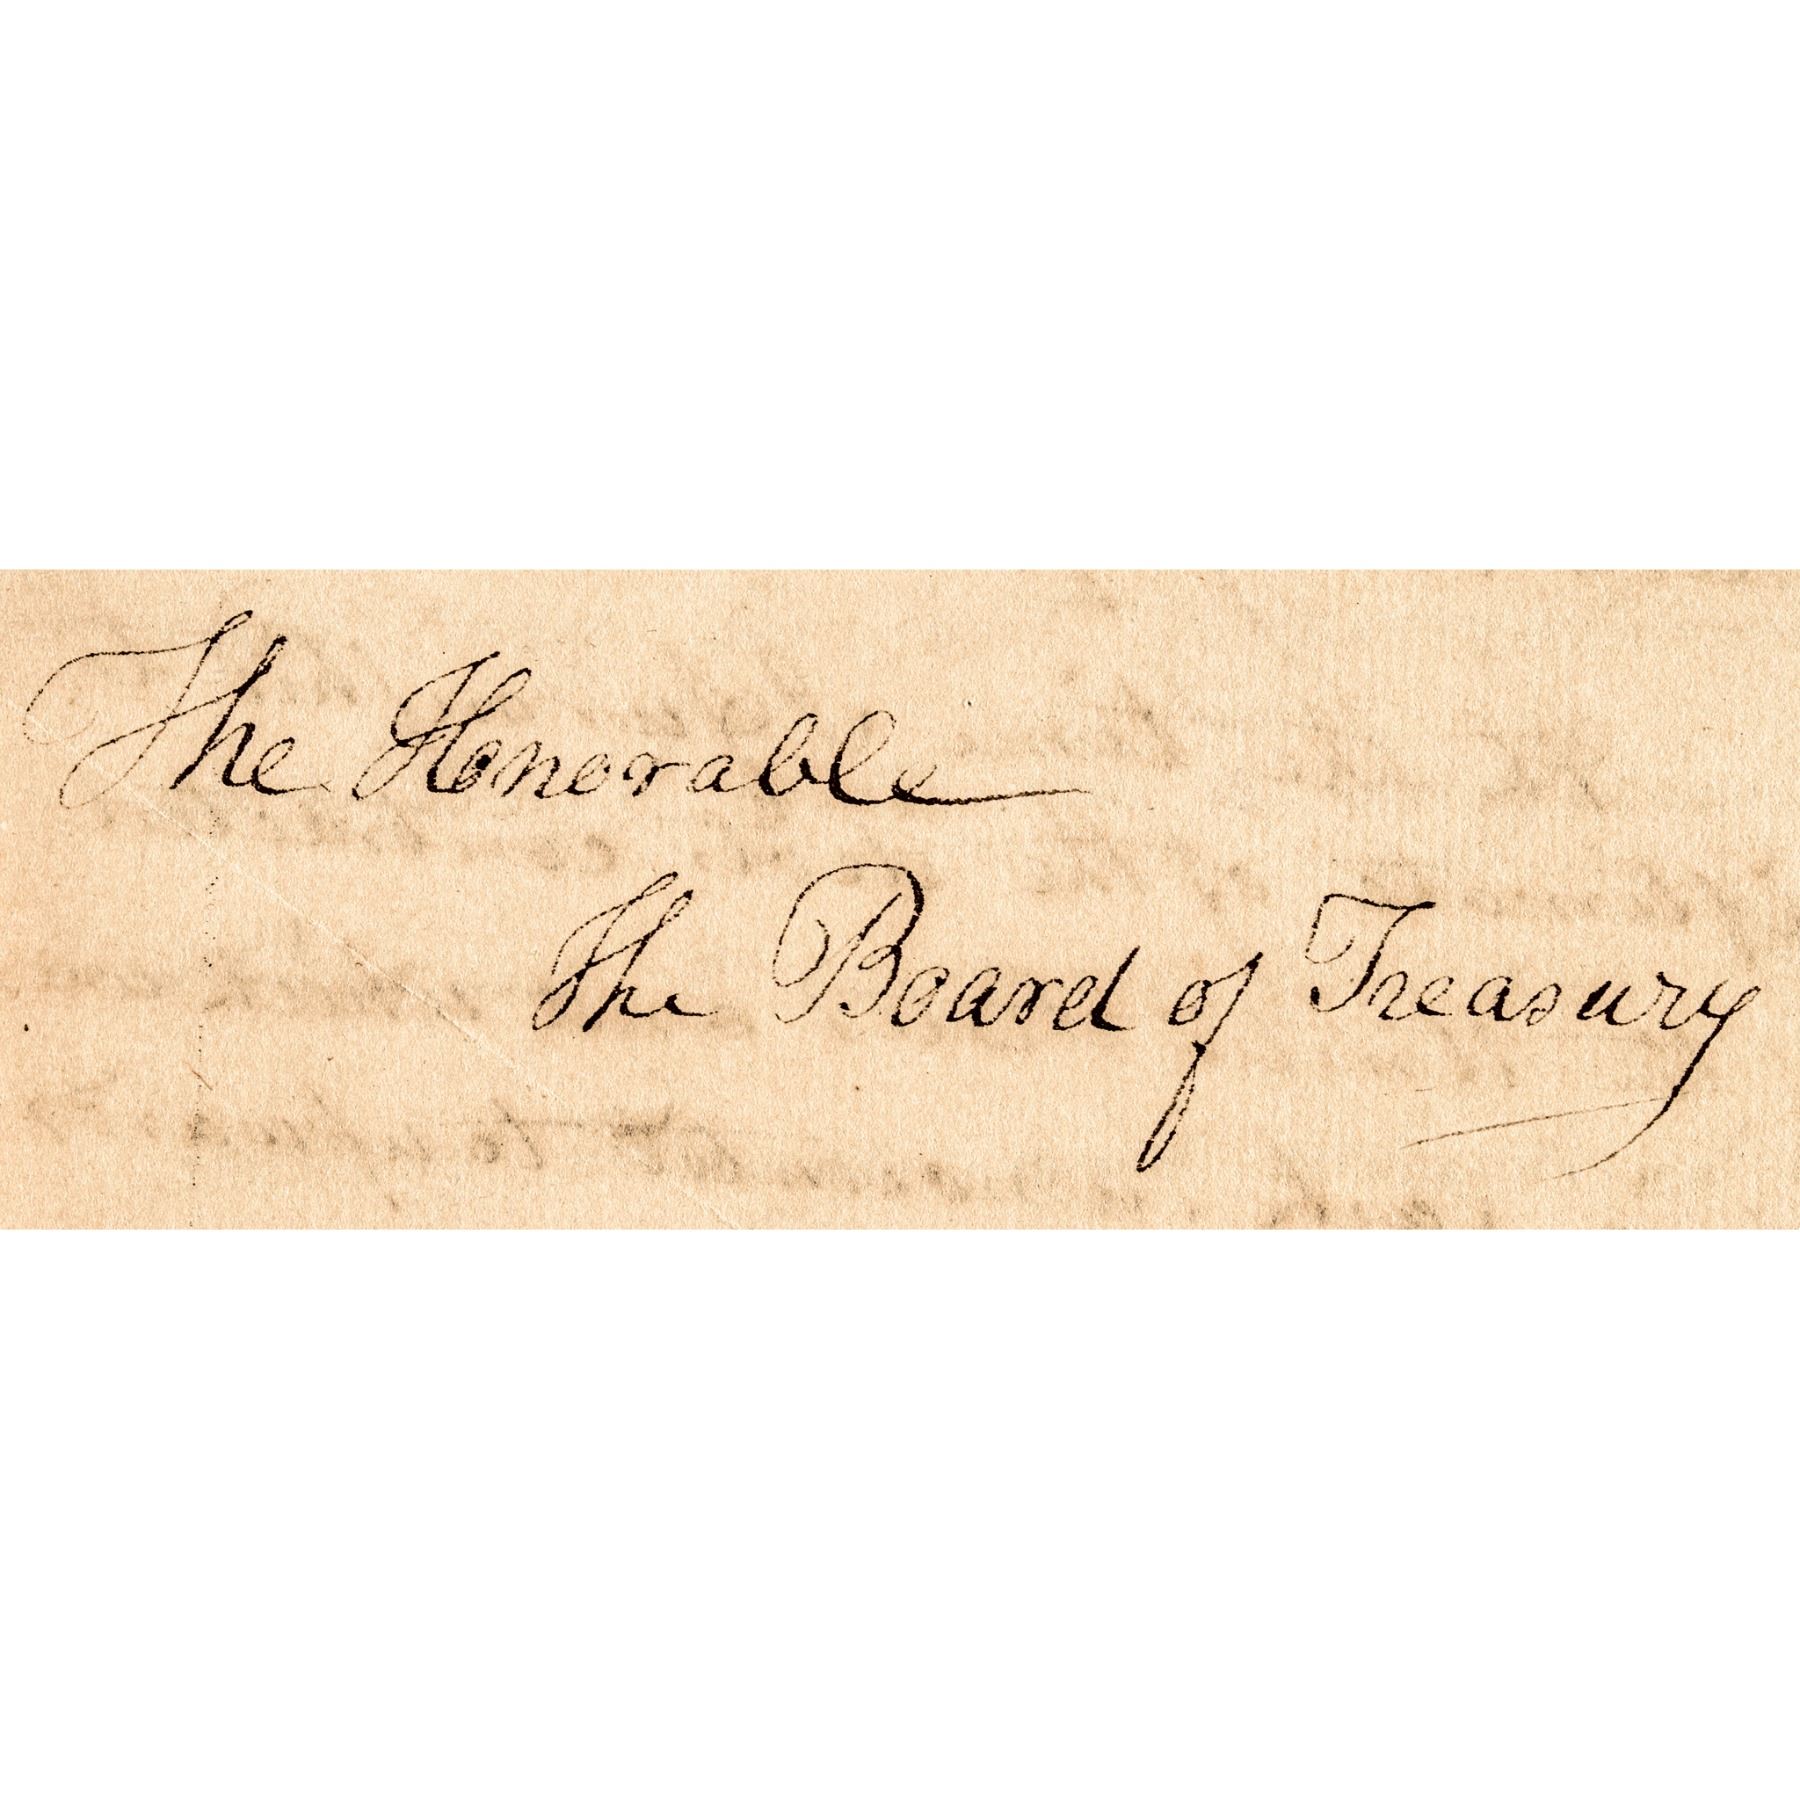 The Honorable
The Board of Treasury